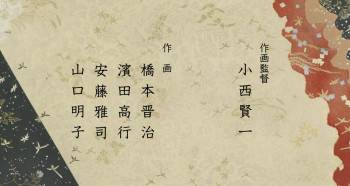 作画監督
小西賢一
作画
橋本晋治
濱田高行
安藤雅司
山口明子